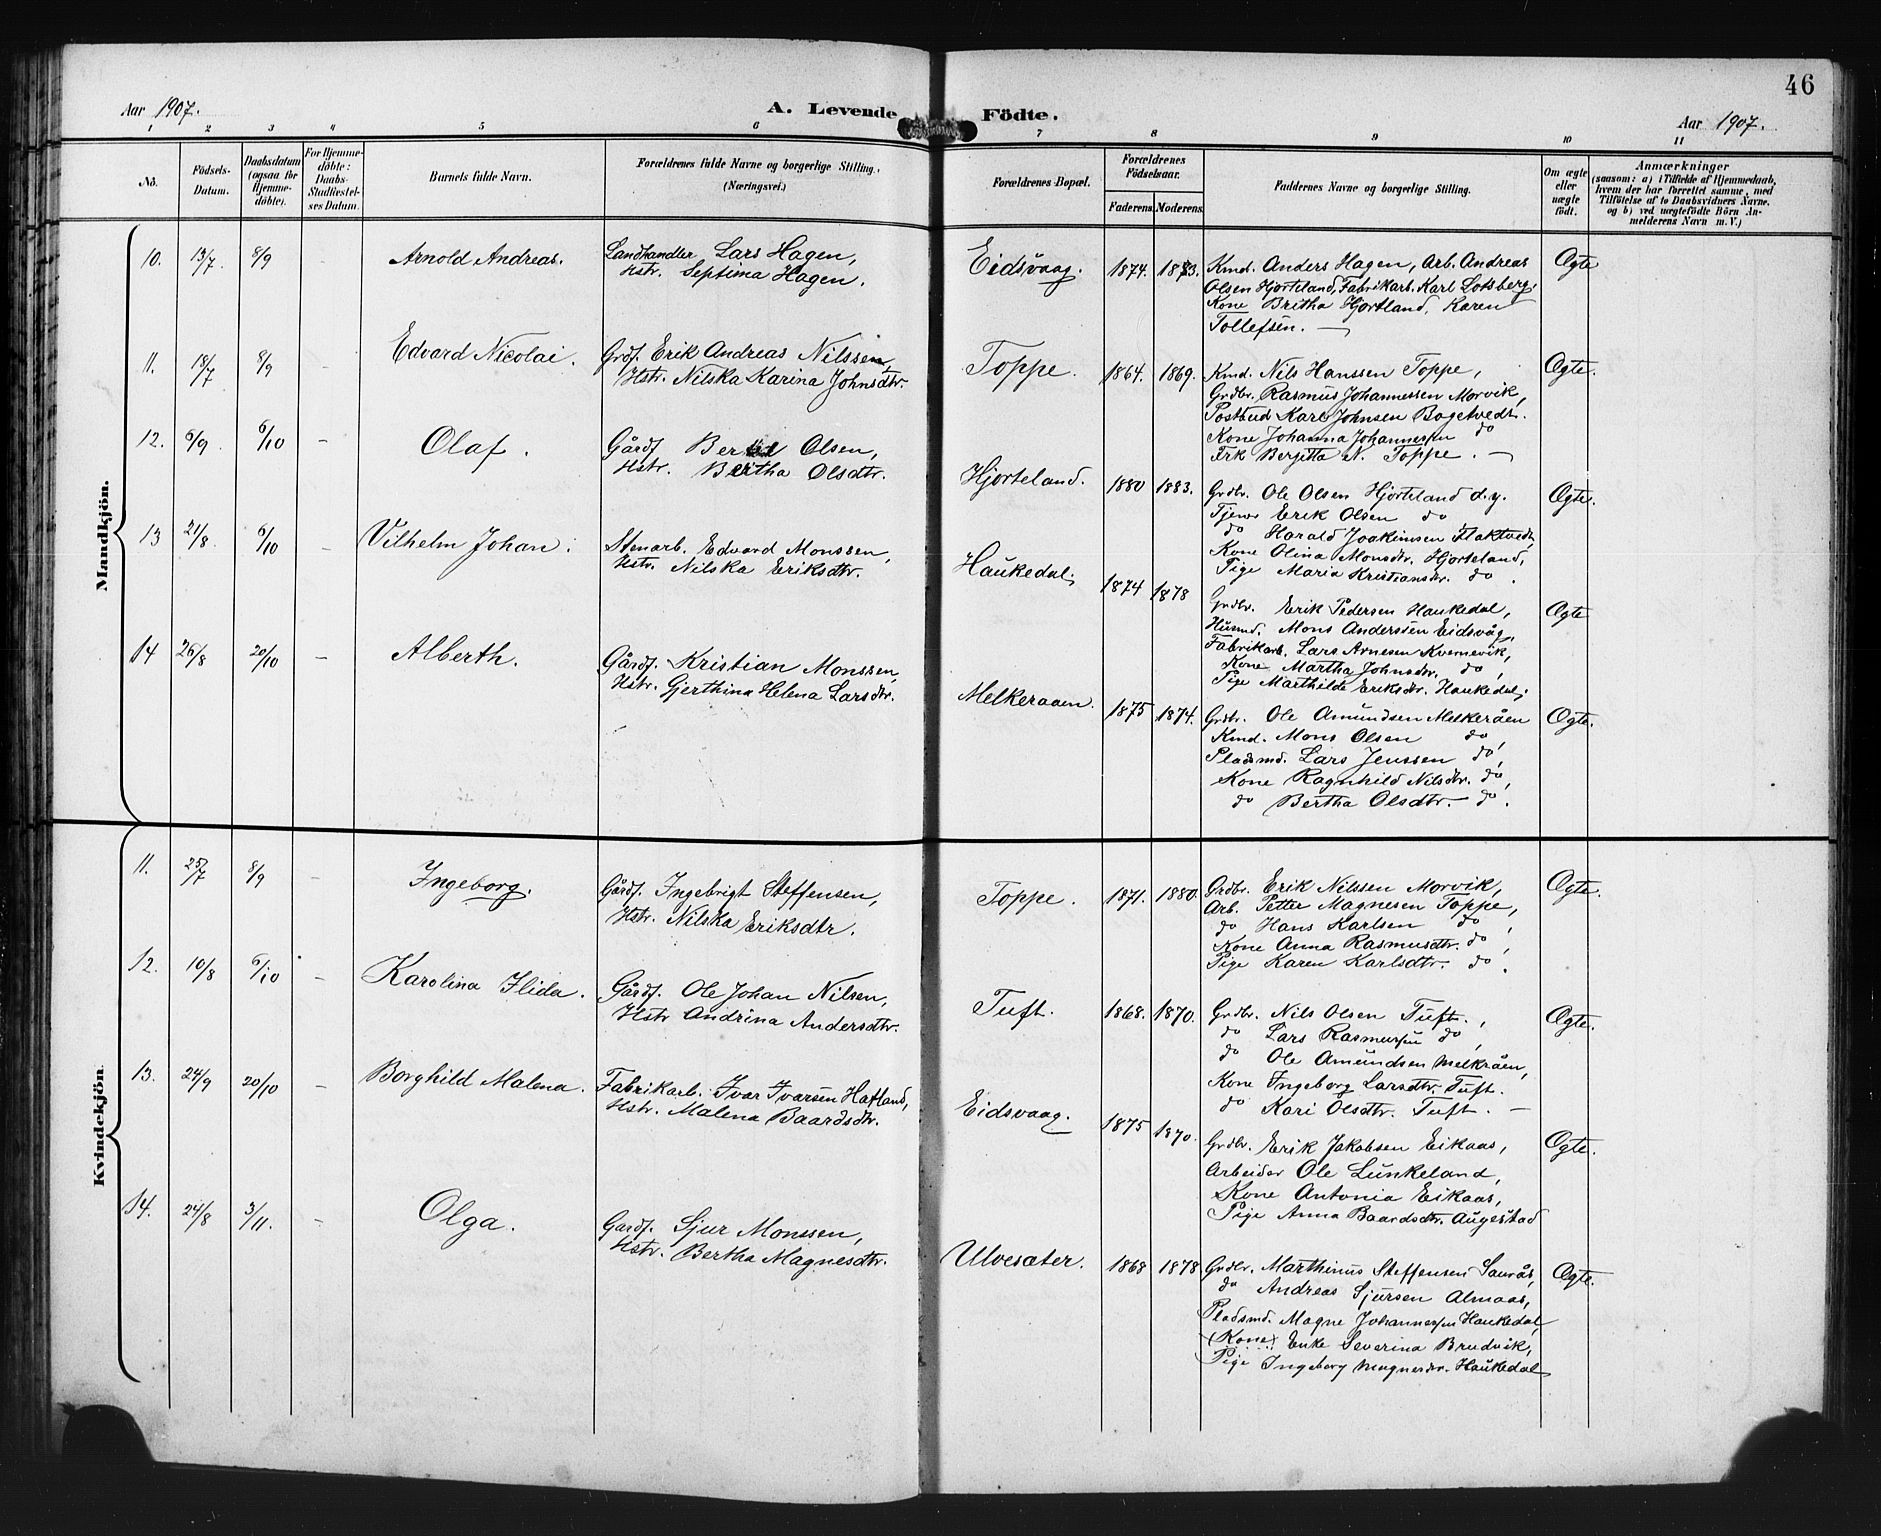 46
Aar 1907.
A. Levende Födte.
Aar 1907.
1 2 3 4 5 6 7 8 9 10 11
No.
Födsels-Datum.
Daabsdatum (ogsaa for Hjemme-döbte).
For Hjemme-döbte: Daabs-Stadfæstel-ses Datum.
Barnets fulde Navn.
Forældrenes fulde Navne og borgerlige Stilling. (Næringsvei.)
Forældrenes Bopæl.
Forældrenes Födselsaar.
Faderens. Moderens.
Faddernes Navne og borgerlige Stilling.
Om ægte eller uægte födt.
Anmærkninger
(saasom: a) i Tilfælde af Hjemmedaab,
hvem der har forrettet samme, med
Tilföielse af to Daabsvidners Navne.
og b) ved uægtefödte Börn An-
melderens Navn m. V.)
Mandkjön.
10. 13/7 8/9 - Arnold Andreas. Landhandler Lars Hagen,
Hstr. Septima Hagen.
Eidsvaag. 1874. 1873. Kmd. Anders Hagen, Arb. Andreas
Olsen Hjorteland, Fabrikarb. Karl Lotsberg.
Kone Britha Hjortland, Karen
Tollefsen. —
Ogte
11. 18/7 8/9 - Edvard Nicolai. Grdf. Erik Andreas Nilssen,
Hstr. Nilska Karina Johnsdtr.
Toppe. 1864. 1869. Kmd. Nils Hanssen Toppe,
Grdbr. Rasmus Johannessen Morvik,
Postbud Karl Johnsen Bogetvedt.
Kone Johanna Johannessen do
Frk Bergitta N. Toppe. —
Ogte.
12. 6/9 6/10 - Olaf. Gårdf. Olsen,
Hstr. Bertha Olsdtr.
Hjorteland. 1880 1883. Grdbr. Ole Olsen Hjorteland d.y.
Tjener Erik Olsen do
do Harald Joakimsen Flaktvedt,
Kone Olina Monsdtr. Hjorteland,
Pige Maria Kristiansdr. do.
Ogte.
13 21/8 6/10 - Vilhelm Johan. Stenarb. Edvard Monssen,
Hstr. Nilska Eriksdtr.
Haukedal. 1874 1878 Grdbr. Erik Pedersen Haukedal,
Husmd. Mons Anderssen Eidsvåg,
Fabrikarb. Lars Arnesen Kvernevik,
Kone Martha Johnsdr. do,
Pige Marthilde Eriksdtr. Haukedal.
Ogte
14 26/8 20/10 - Alberth. Gårdf. Kristian Monssen,
Hstr. Gjerthina Helena Larsdtr.
Melkeraaen. 1875 1874. Grdbr. Ole Amundsen Melkeråen
Kmd. Mons Olsen do,
Pladsmd. Lars Jenssen do,
Kone Ragnhild Nilsdtr. do,
do Bertha Olsdtr. do.
Ogte.
Kvindekjön.
11. 25/7 8/9 - Ingeborg. Gårdf. Ingebrigt Steffensen,
Hstr. Nilska Eriksdtr.
Toppe. 1871. 1880. Grdbr. Erik Nilssen Morvik,
Arb. Petter Magnesen Toppe,
do Hans Karlsen do,
Kone Anna Rasmusdtr. do,
Pige Karen Karlsdtr. do.
Ogte.
12. 10/8 6/10 - Karolina Ilida. Gårdf. Ole Johan Nilsen,
Hstr Andrina Andersdtr.
Tuft. 1868. 1870. Grdbr. Nils Olsen Tuft,
do Lars Rasmussen do,
do Ole Amundsen Melkråen,
Kone Ingeborg Larsdtr. Tuft.
do Kari Olsdtr. Tuft. —
Ogte.
13. 24/9 20/10 - Borghild Malena. Fabrikarb. Ivar Ivarsen Hafland,
Hstr. Malena Baardsdtr.
Eidsvaag. 1875 1870. Grdbr. Erik Jakobsen Eikaas,
Arbeider Ole Lunkeland,
Kone Antonia Eikaas,
Pige Anna Baardsdtr. Augestad
Ogte.
14. 24/8 3/11. - Olga. Gardf. Sjur Monssen,
Hstr. Bertha Magnesdtr.
Ulvesæter. 1868 1878 Grdbr. Marthinus Steffensen Saurås,
do Andreas Sjursen Almaas,
Pladsmd. Magne Johannessen Haukedal,
(Kone) Enke Severina Brudvik,
Pige Ingeborg Magnesdr. Haukedal
Ogte.